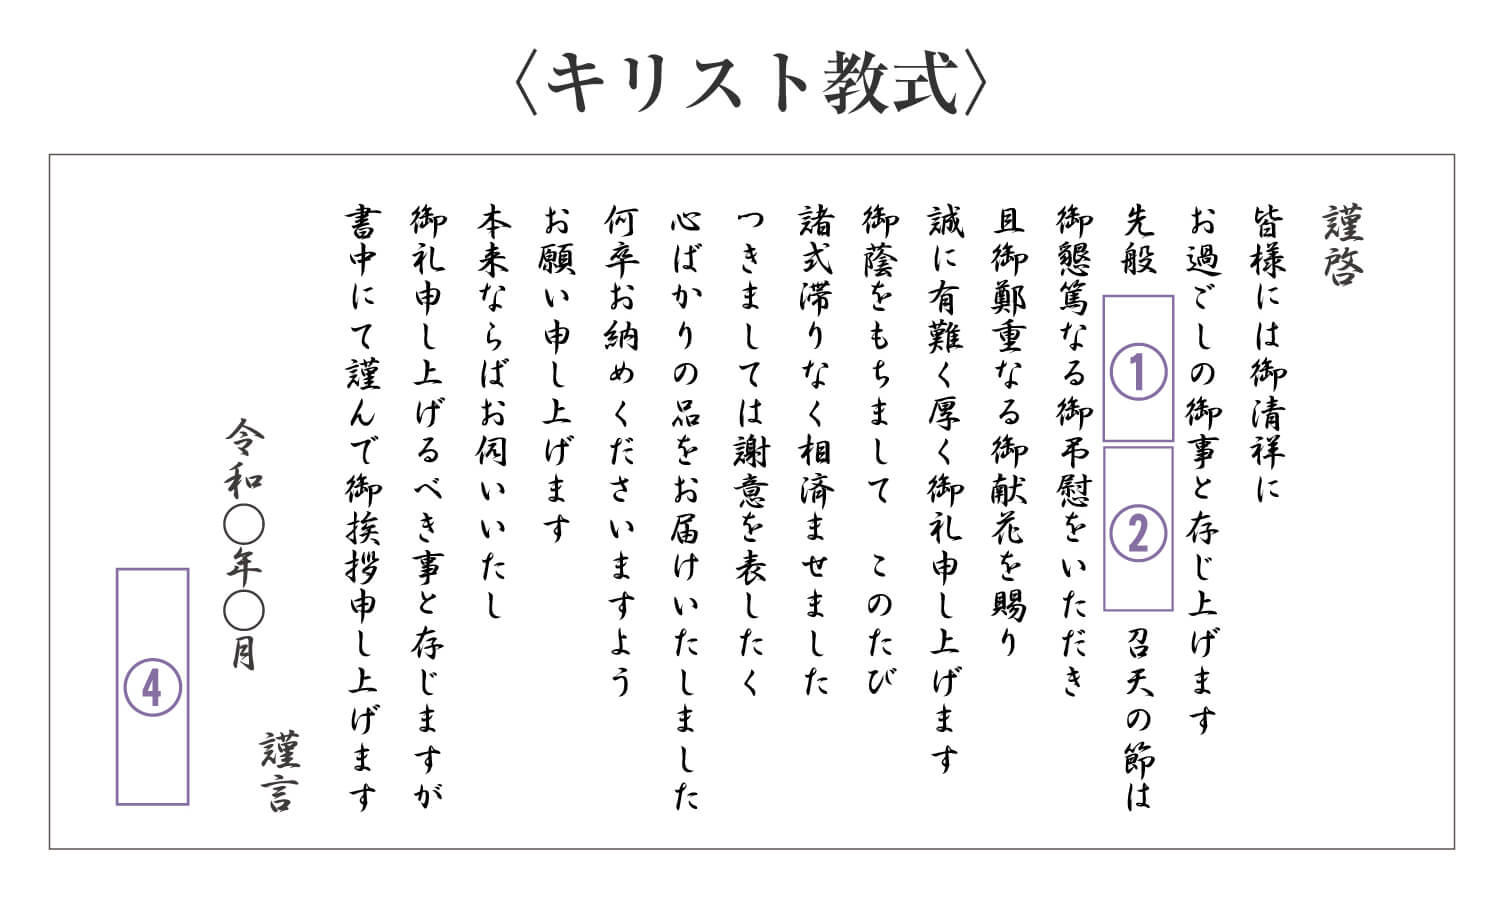 〈キリスト教式〉
謹啓
皆様には御清祥に
お過ごしの御事と存じ上げます
先般 ① ② 召天の節は
御懇篤なる御弔慰をいただき
且御鄭重なる御献花を賜り
誠に有難く厚く御礼申し上げます
御蔭をもちまして このたび
諸式滞りなく相済ませました
つきましては謝意を表したく
心ばかりの品をお届けいたしました
何卒お納めくださいますよう
お願い申し上げます
本来ならばお伺いいたし
御礼申し上げるべき事と存じますが
書中にて謹んで御挨拶申し上げます
謹言
令和〇年〇月
④